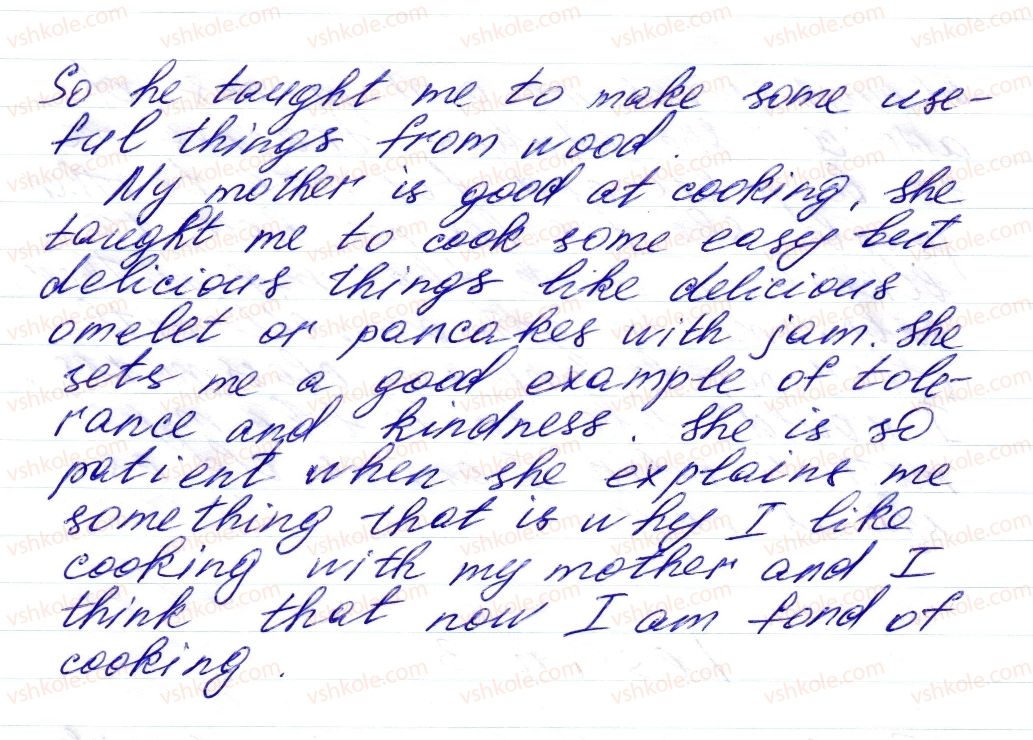 So he taught me to make some use-
ful things from wood.
My mother is good at cooking, she
taught me to cook some easy but
delicious things like delicious
omelet or pancakes with jam. She
sets me a good example of tole-
rance and kindness. She is so
patient when she explains me
something that is why I like
cooking with my mother and I
think that now I am fond of
cooking.